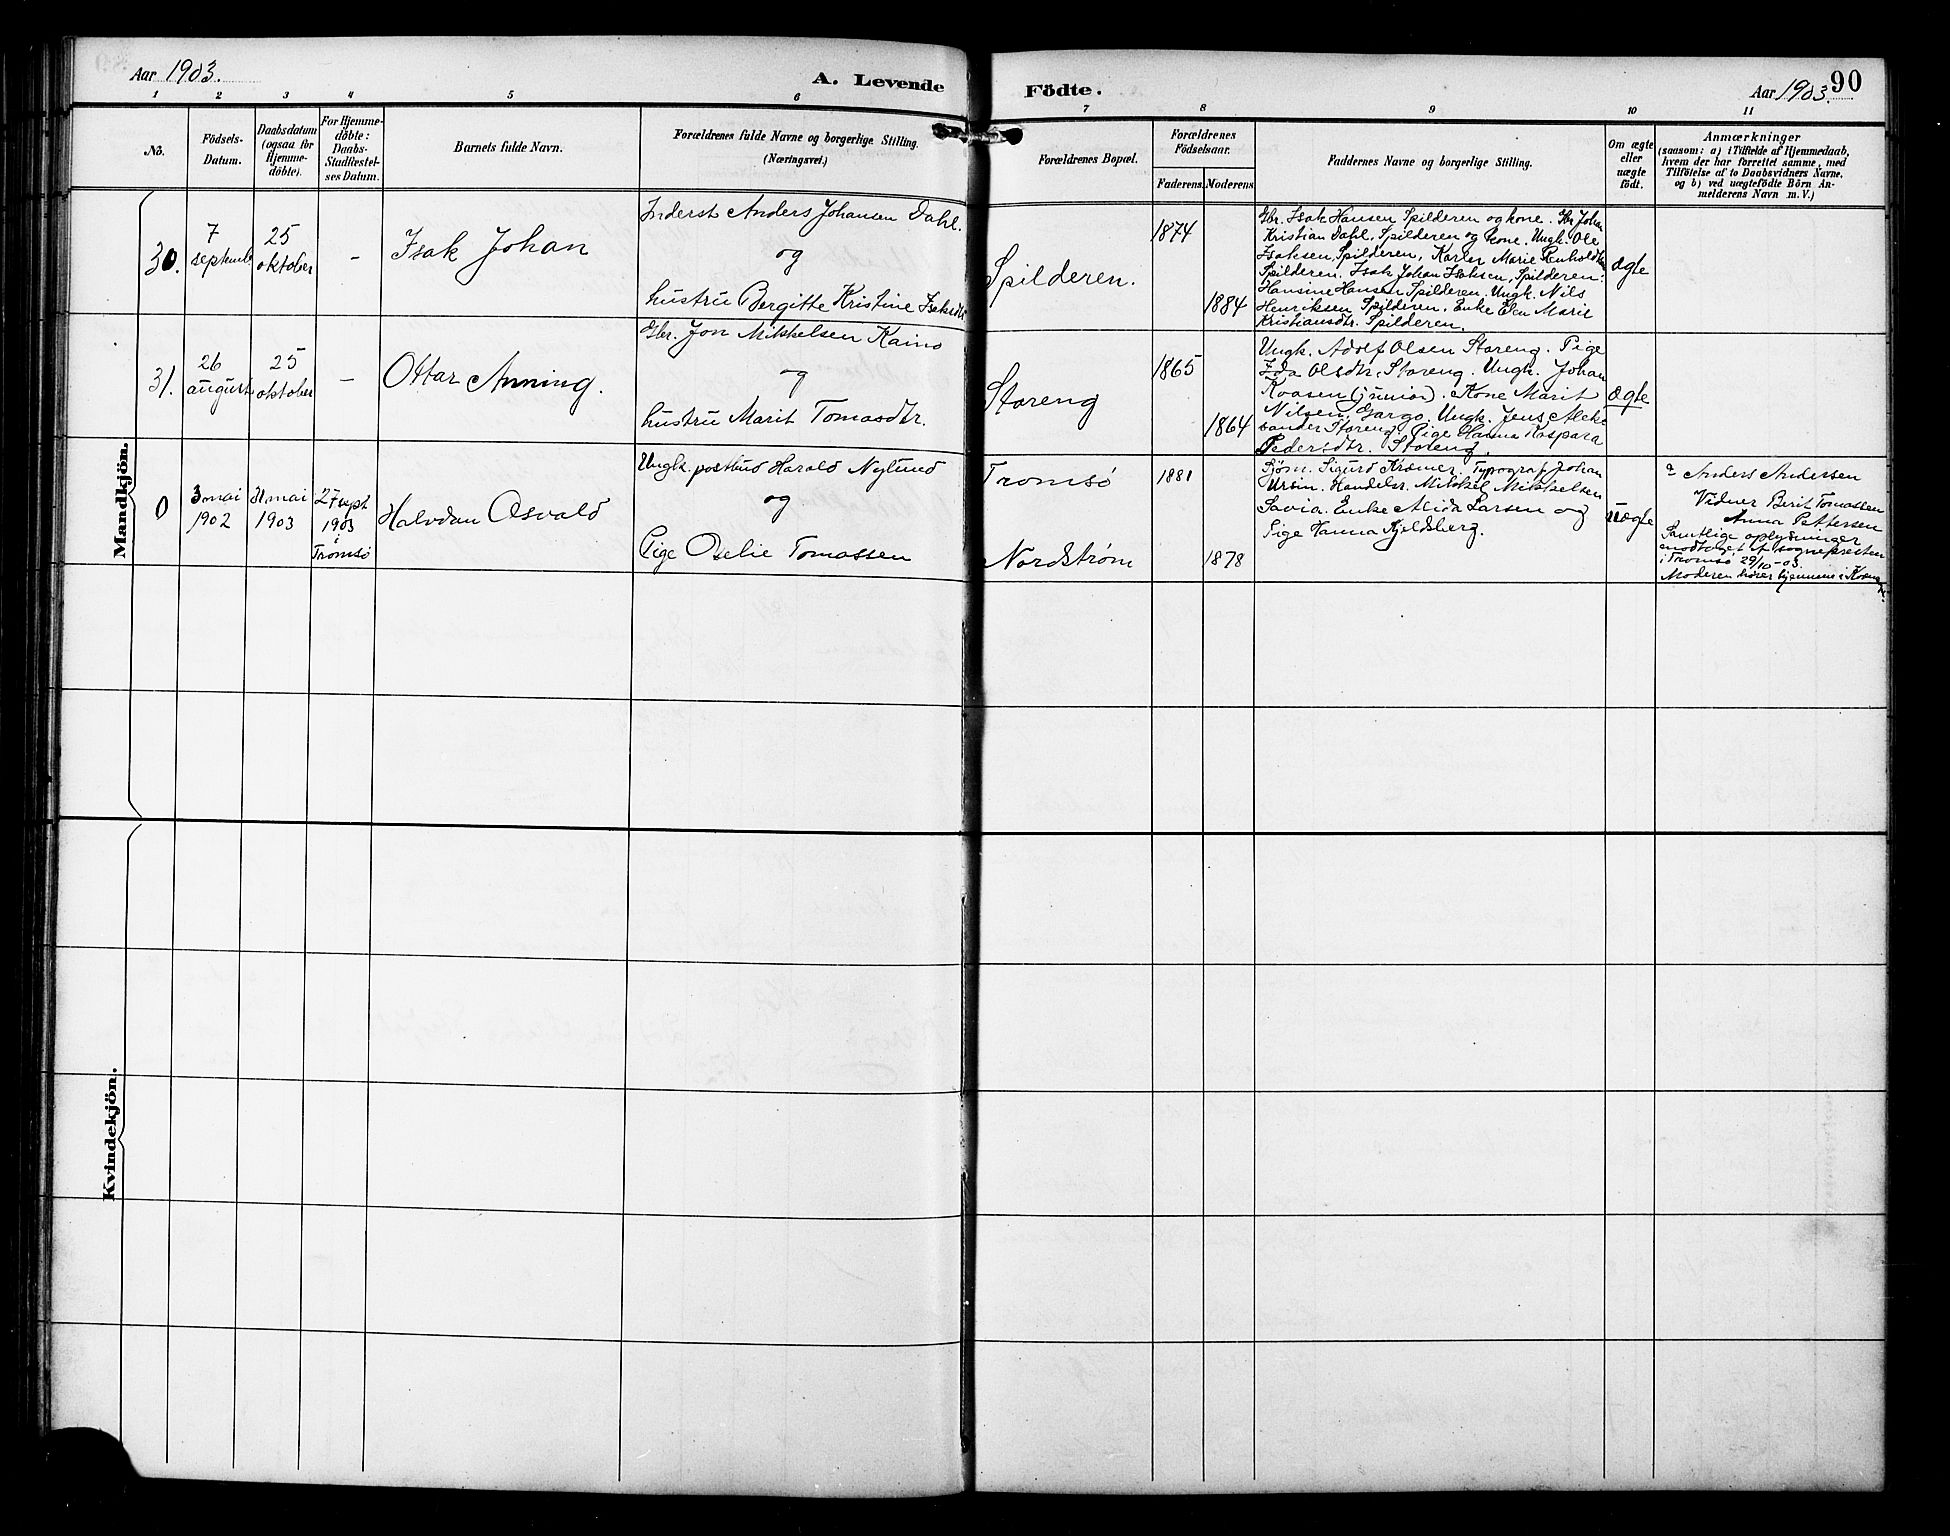 Aar 1903.
A. Levende
Födte.
Aar 1903.
90
1
2
3
4
5
6
7
8
9
10
11
No.
Födsels-
Datum.
Daabsdatum
(ogsaa for
Hjemme-
döbte).
For Hjemme-
döbte:
Daabs-
Stadfæstel-
ses Datum.
Barnets fulde Navn.
Forældrenes fulde Navne og borgerlige Stilling.
(Næringsvei.)
Forældrenes Bopæl.
Forældrenes
Födselsaar.
Faderens.
Moderens.
Faddernes Navne og borgerlige Stilling.
Om ægte
eller
uægte
født.
Anmærkninger
(saasom: a) i Tilfælde af Hjemmedaab,
hvem der har forrettet samme, med
Tilföielse af to Daabsvidners Navne,
og b) ved uægtefödte Börn An-
melderens Navn m. V.)
Mandkjön.
30.
7
septemb.
25
oktober
-
Isak Johan
Inderst Anders Johansen Dahl.
og
hustru Bergitte Kristine Isaksdtr
Spilderen.
1874
1884
Gbr. Isak Hansen Spilderen og kone. Gbr Johan
Kristian Dahl, Spilderen og kone. Ungk. Ole
Isaksen, Spilderen, Karen Marie
Spilderen. Isak Johan Isaksen, Spilderen.
Hansine Hansen Spilderen. Ungk. Nils
Henriksen Spilderen. Enke Elen Marie
Kristiansdtr. Spilderen.
ægte
31.
26
august
25
oktober
-
Ottar Anning.
Gbr. Jon Mikkelsen Kaino
og
hustru Marit Tomasdtr.
Storeng
1865
1864
Ungk. Adolf Olsen Storeng. Pige
Ida Olsdtr. Storeng. Ungk. Johan
(junior). Kone Marit
Nilsen, Gargo. Ungk. Jens Alek-
sander Storeng. Pige Hanna Kaspara
Pedersdtr. Storeng.
ægte
0
3 mai
1902
31 mai
1903
27 sept
1903
i
Tromsø
Halvdan Osvald
Ungk. postbud Harald Nylund
og
Pige Oselie Tomassen
Tromsø
Nordstrøm
1881
1878
Sjøm. Sigurd Kræmer. Typograf Johan
Ursin. Handelsr. Mikkel Mikkelsen
Savio. Enke Alida Larsen og
Pige Hanna Kjeldsberg.
uægte
a Anders Andersen
Vidner Berit Tomassen
Anna Pettersen
Samtlige oplysninger
modtaget af sognepresten
i Tromsø 29/10-03.
Moderen hører hjemme i
Kvindekjön.